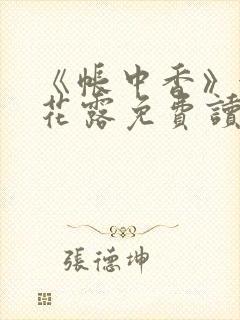 《帳中香》
花露免費讀
張德坤